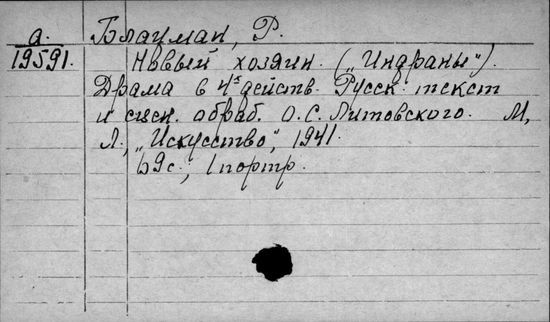 а. Блауман, Р.
19591. Новый хозяин. („Индраны").
Драма в 4х действ. Русск. текст
и сцен. обраб. О.С. Литовского. М,
Л., „Искусство", 1941.
69с., 1 портр.